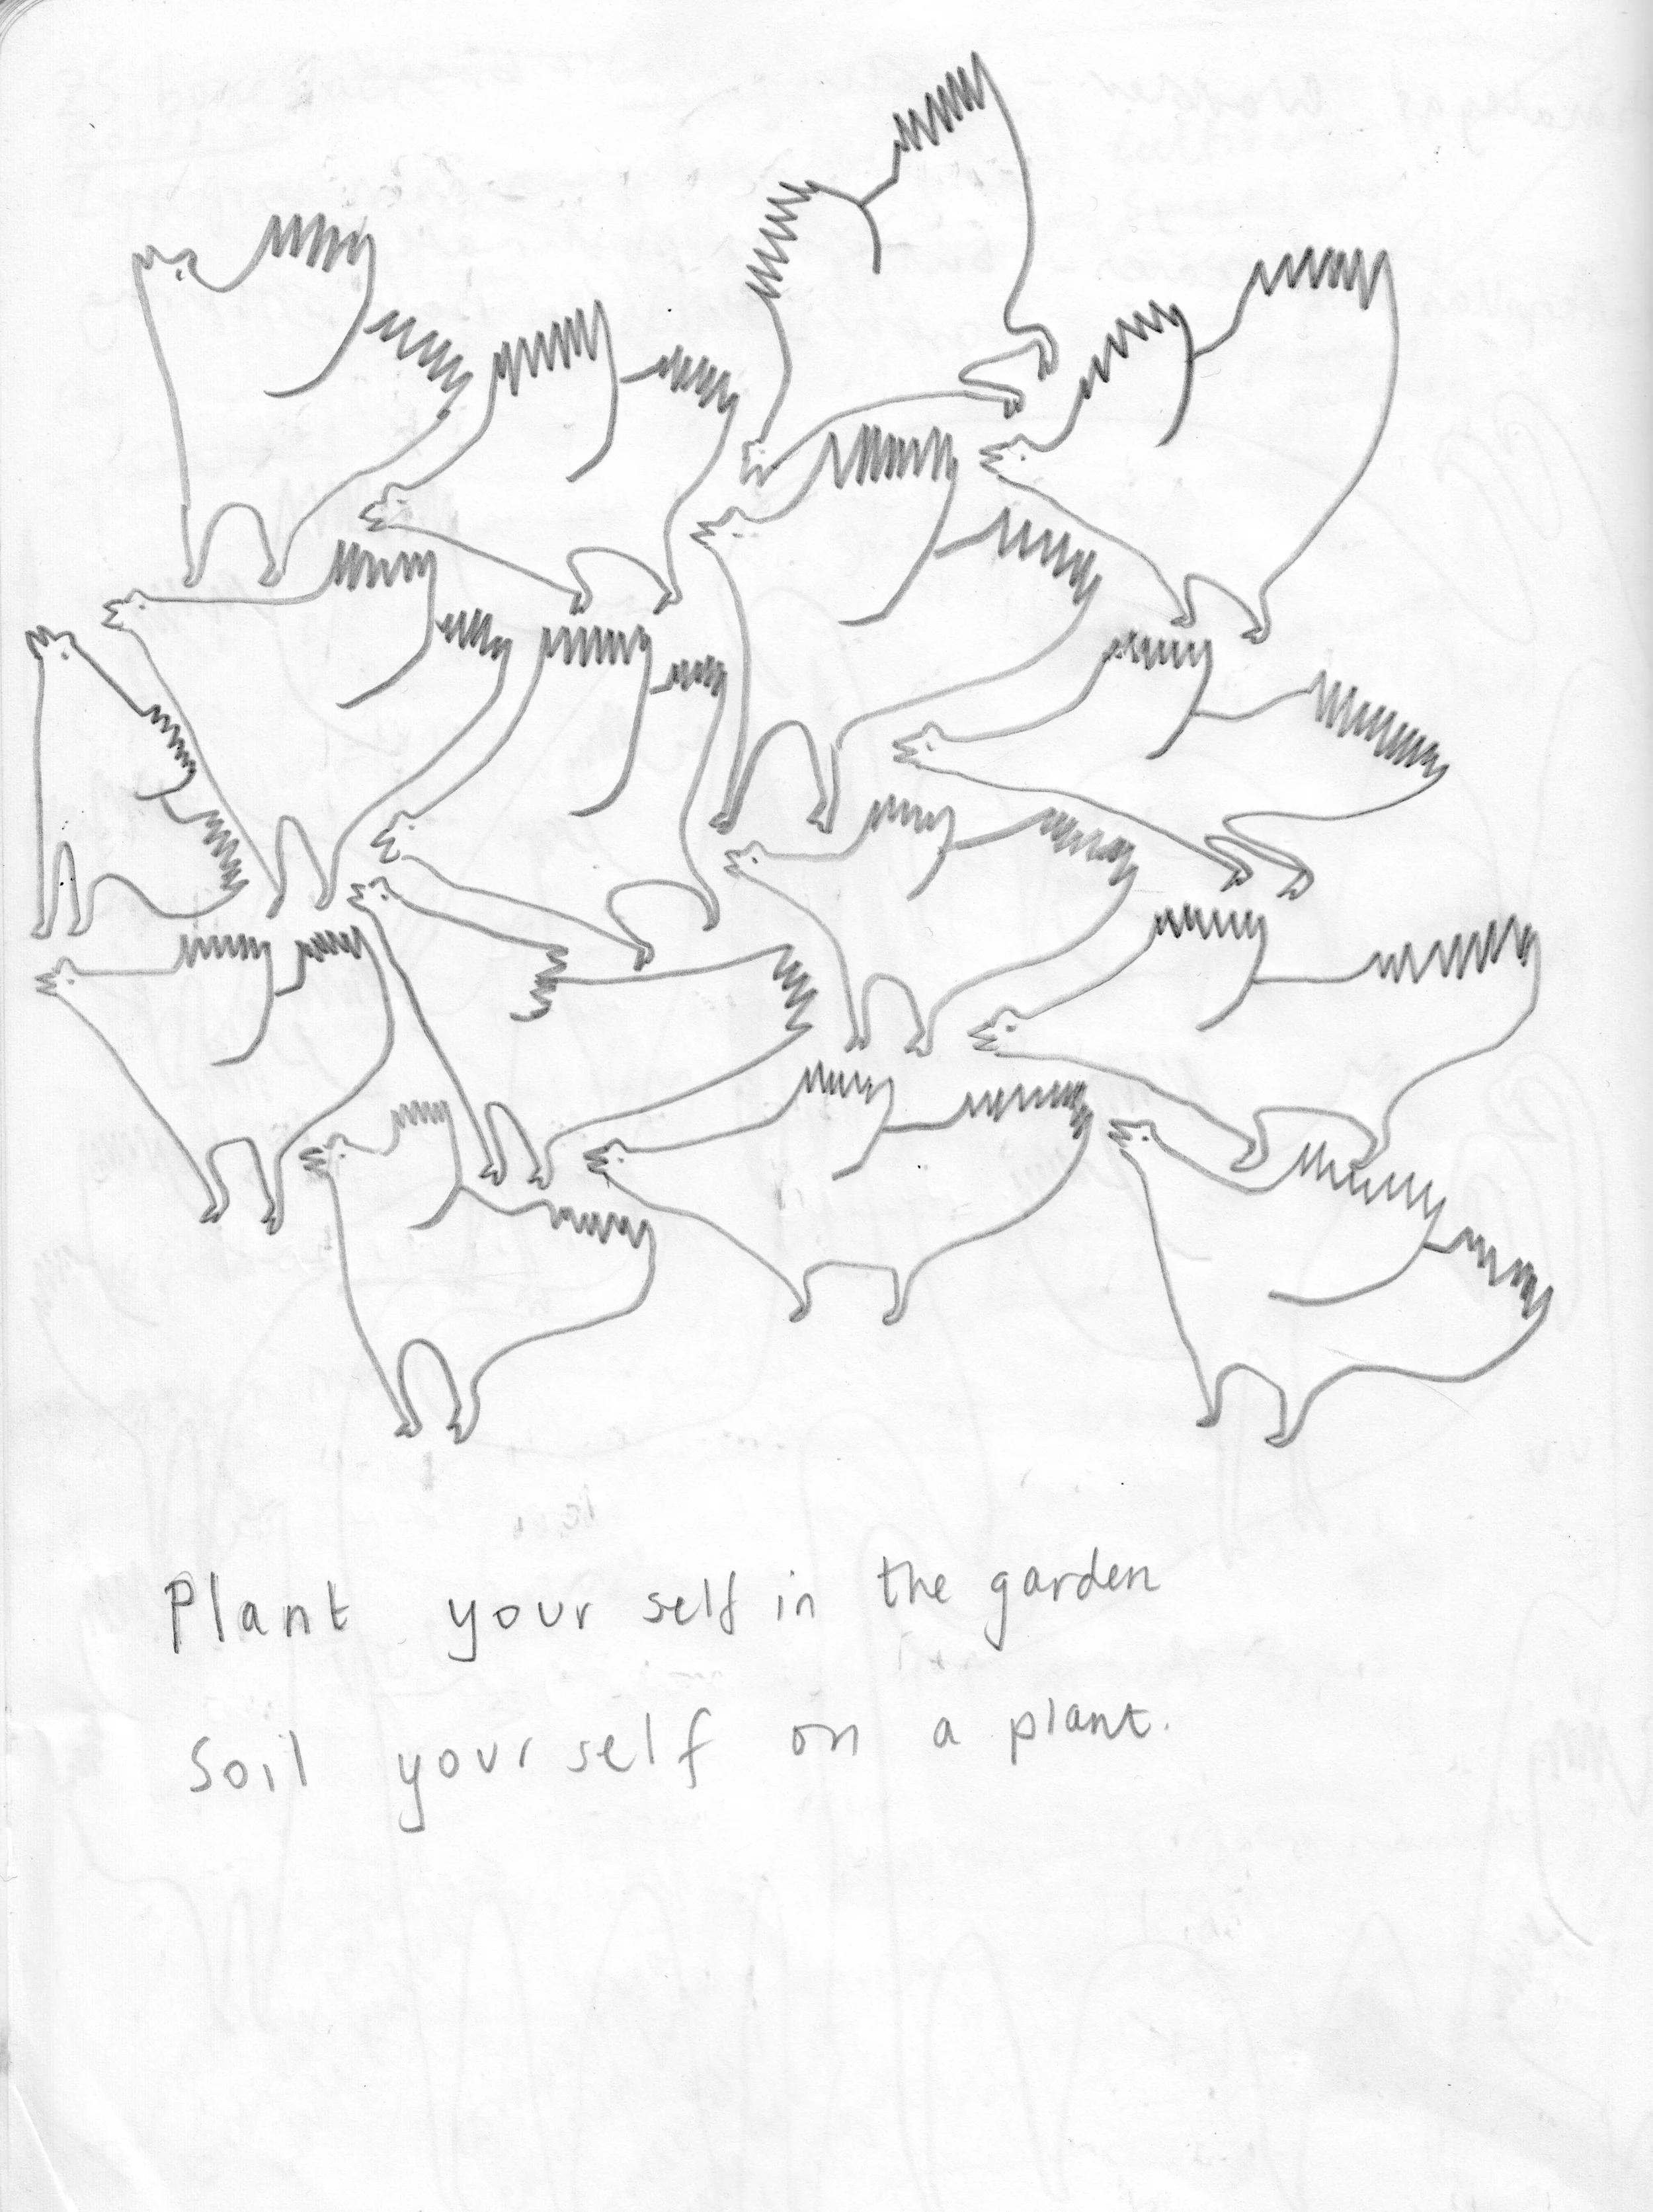 Plant your self in the garden
Soil yourself on a plant.